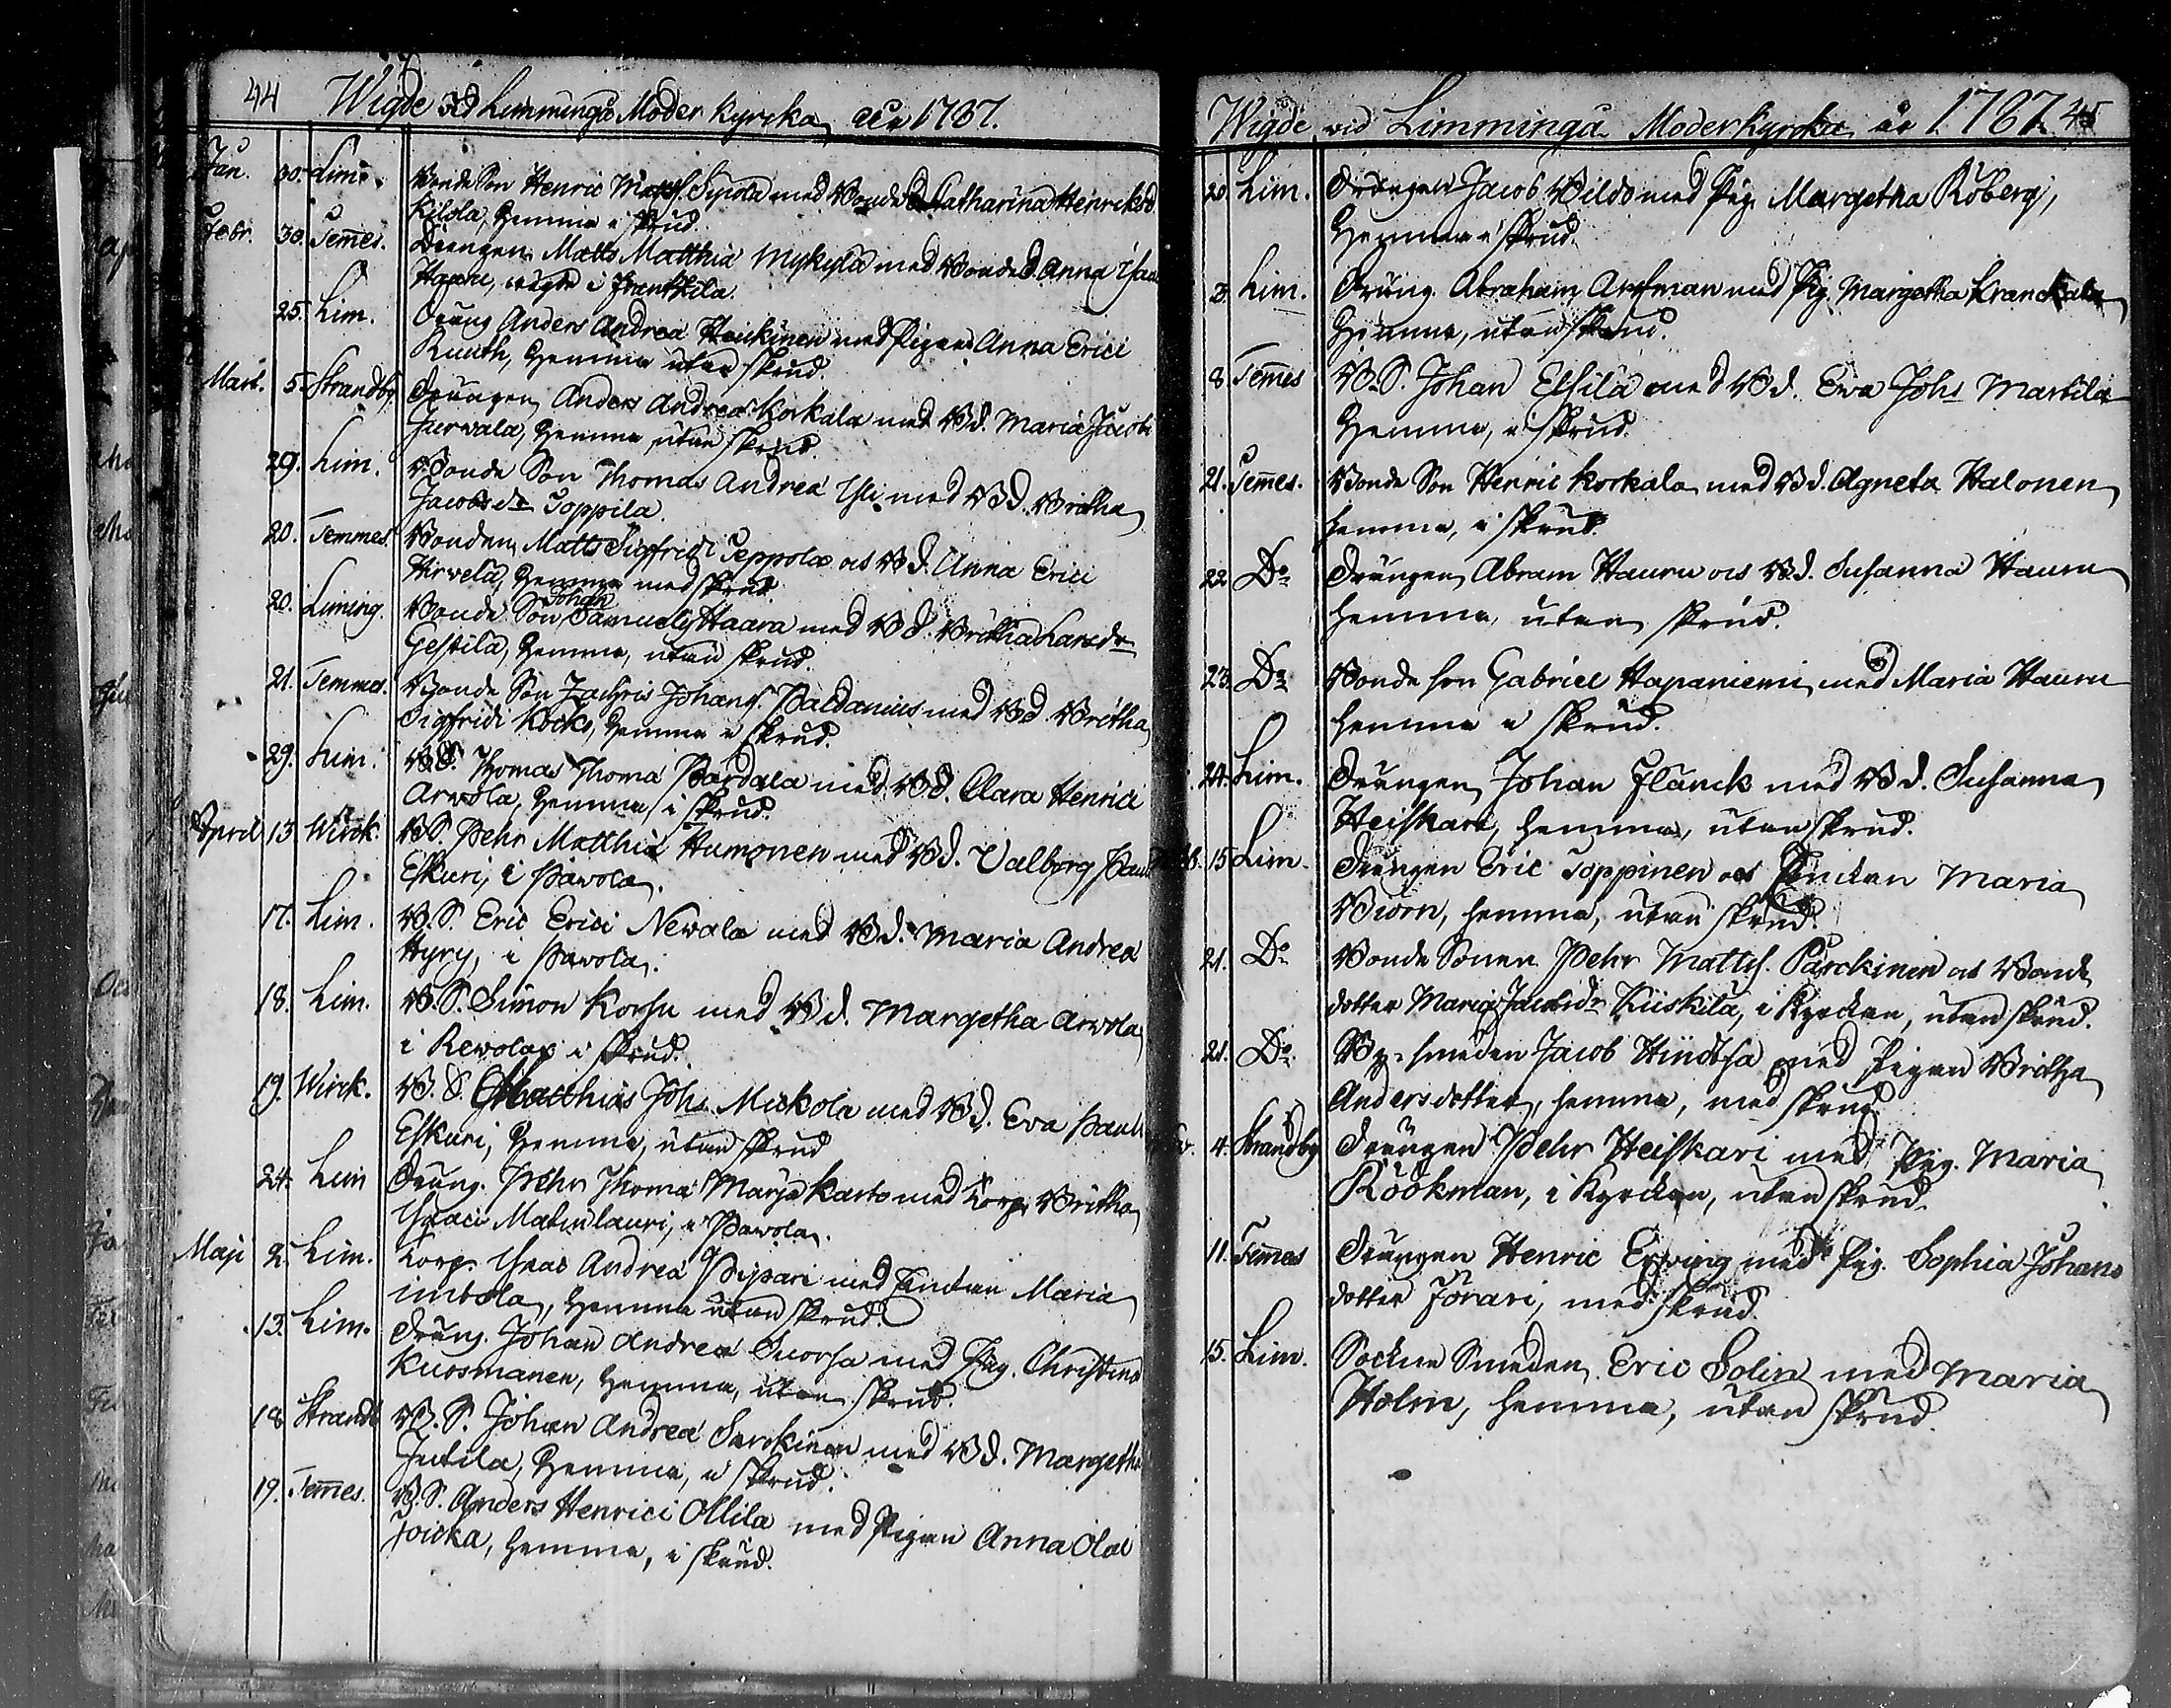 44 Wigde vid Limminga Moder kyrcka år 1787.
Jan. 30. Lim. Bonde Son Henric Matts. Sipola med Bonde D. Catharina Henricksd.
Kilola, hemma i skrud.
Febr. 30. Temmes. Drengen Matts Matthiæ Mykylä med Bonde d. Anna
wigde i Frantzila.
25. Lim. Dräng Anders Andreæ Heickinen med Pigan Anna Erici
Ruuth, hemma utan skrud.
Mart. 5. Strandby Drängen Anders Andreæ Korkala med B d. Maria Jacobi
Jurwala, hemma utan skrud.
29. Lim. Bonde Son Thomas Andreæ Yli med B d. Britha
Jacobsdr Toppila.
20. Temmes. Bonden Matts Sigfridi Seppola och B d. Anna Erici
Hirvelä, hemma med skrud.
20. Liming. Bonde Son Johan Samuels Haara med B d. Britha Larsdr
Gestilä, hemma, utan skrud.
21. Temmes. Bonde Son Zachris Johans. Paldanius med B d. Britha
Sigfridi Kocko, hemma i skrud.
29. Lim. B. S. Thomas Thomæ Pardala med B d. Clara Henrici
Arwola, hemma i skrud.
April 15 Wirk. B. S. Pehr Matthiæ Humonen med B d. Valborg Pauli
Eskuri, i Pawola.
17. Lim. B. S. Eric Erici Newala med B d. Maria Andreæ
Hyry, i Pawola.
18. Lim. B. S. Simon Korsu med B d. Margetha Arwola
i Rewolax i skrud.
19. Wirck. B. S. Matthias Johs Mickola med B d. Eva Pauli
Eskuri, hemma, utan skrud
24. Lim Dräng. Pehr Thomæ Marjakarto med Torp. Britha
Isaaci Matinlauri, i Pawola.
Maji 2. Lim. Torp. Isaac Andreæ Pipari med Enckan Maria
Imbola, hemma utan skrud.
13. Lim. Dräng. Johan Andreæ Suorsa med Pig. Christina
Kussmanen, hemma, utan skrud.
18 Strandb B. S. Johan Andreæ Sarckinen med B d. Margetha
Jutila, hemma, i skrud.
19. Temmes. B. S. Anders Henrici Ollila med Pigan Anna Olai
Joicka, hemma, i skrud.
Wigde vid Limminga Moderkyrcka år 1787. 45
20. Lim. Drängen Jacob Bildo med Pig. Margetha Röberg,
Hemma i skrud.
3. Lim. Dräng. Abraham Artman med Pig. Margetha Kranckala
Hemma, utan skrud.
8. Temmes B. S. Johan Elsilä med B d. Eva Johs Martila
Hemma, i skrud.
21. Temmes. Bonde Son Henric Korkala med B d. Agneta Halonen
hemma, i skrud.
22. Do Drängen Abram Hauru och B d. Susanna Hauru
hemma, utan skrud.
23. Do Bonde son Gabriel Hapaniemi med Maria Hauru
hemma i skrud.
24. Lim. Drängen Johan Flanck med B d. Susanna
Heiskari, hemma, utan skrud.
15. Lim. Drängen Eric Toppinen och Enckan Maria
Biörn, hemma, utan skrud.
21. Do Bonde Sonen Pehr Matts. Parckinen och Bonde
dotter Maria Jacobsdr Kiiskilä, i Kyrckan, utan skrud.
21. Do By-smeden Jacob Hindsa med Pigan Britha
Andersdotter, hemma, med skrud.
4. Strandby Drängen Pehr Heiskari med Pig. Maria
Röökman, i Kyrckan, utan skrud.
11. Temmes Drängen Henric Erving med Pig. Sophia Johans
dotter Törari, med skrud.
15. Lim. Sockne Smeden Eric Solin med Maria
Holm, hemma, utan skrud.